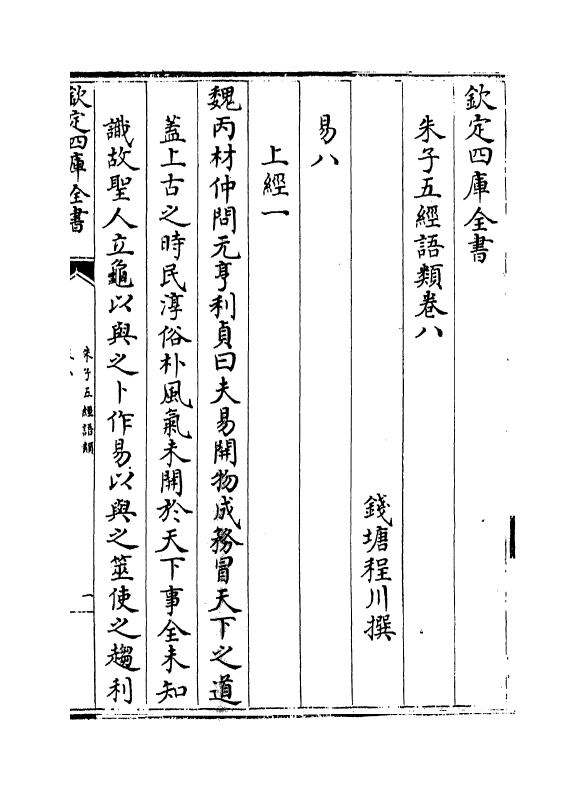 欽定四庫全書
朱子五經語類卷八
錢塘程川撰
易八
上經一
魏丙材仲問元亨利貞曰夫易開物成務冒天下之道
蓋上古之時民淳俗朴風氣未開於天下事全未知
識故聖人立龜以與之卜作易以與之筮使之趨利
欽定四庫全書
朱子五經語類
一